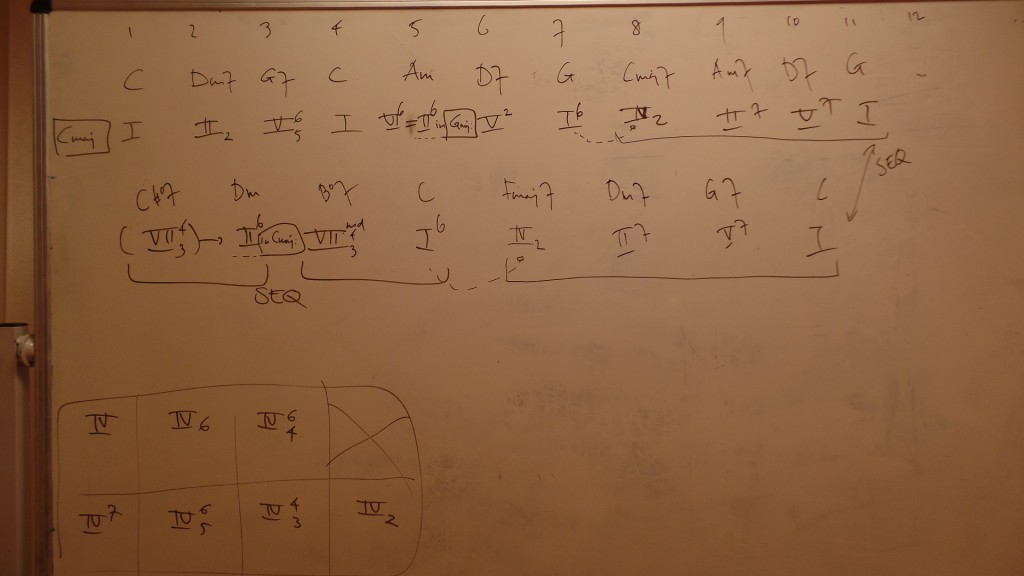 1 2 3 4 5 6 7 8 9 10 11 12
C Dm7 G7 C Am D7 G Cmaj7 Am7 D7 G -
Cmaj I II2 V65 I VI6=II6 in Gmaj V2 I6 IV2 II7 V7 I
SEQ
C#o7 Dm Bo7 C Fmaj7 Dm7 G7 C
(VII43)→ II6 in Cmaj VII43 I6 IV2 II7 V7 I
SEQ
IV IV6 IV64
IV7 IV65 IV43 IV2